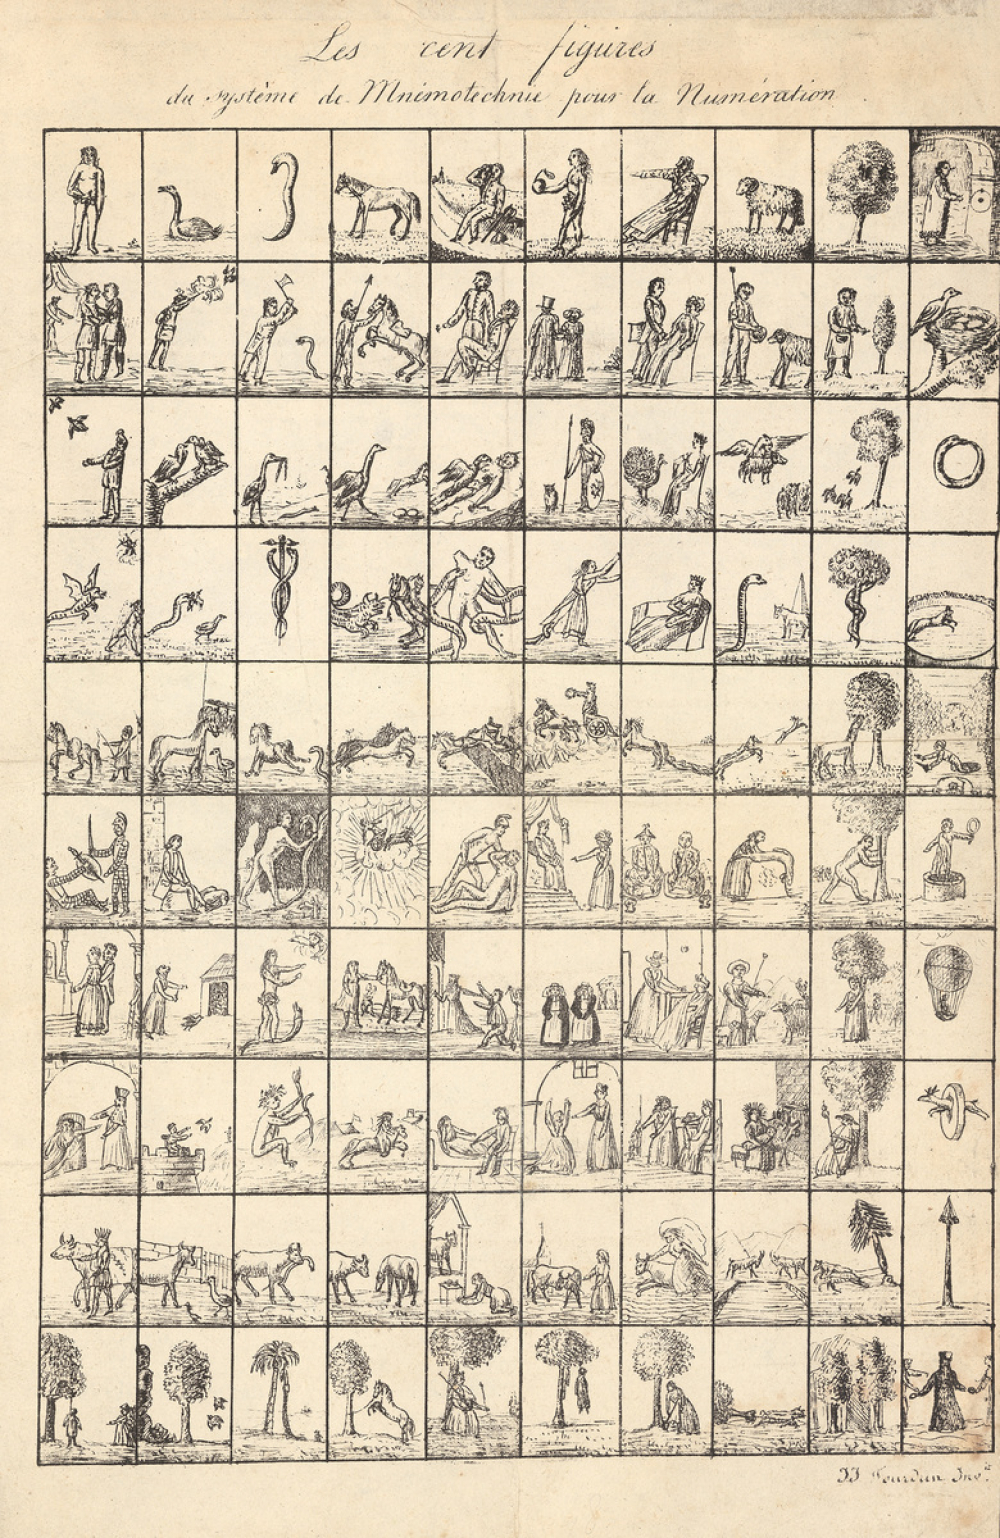 Les cent figures
du système de Mnémotechnie pour la Numération
JJ Jourdan Inv.